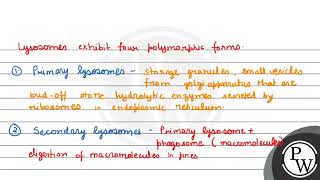 Lysosomes exhibit four polymorphic forms.
① Primary lysosomes - Storage granules, small vesicles
from golgi apparatus that are
bud-off store hydrolytic enzymes secreted by
ribosomes in endoplasmic reticulum.
② Secondary lysosomes - Primary lysosome +
phagosome (macromolecules)
digestion of macromolecules in pres
PW